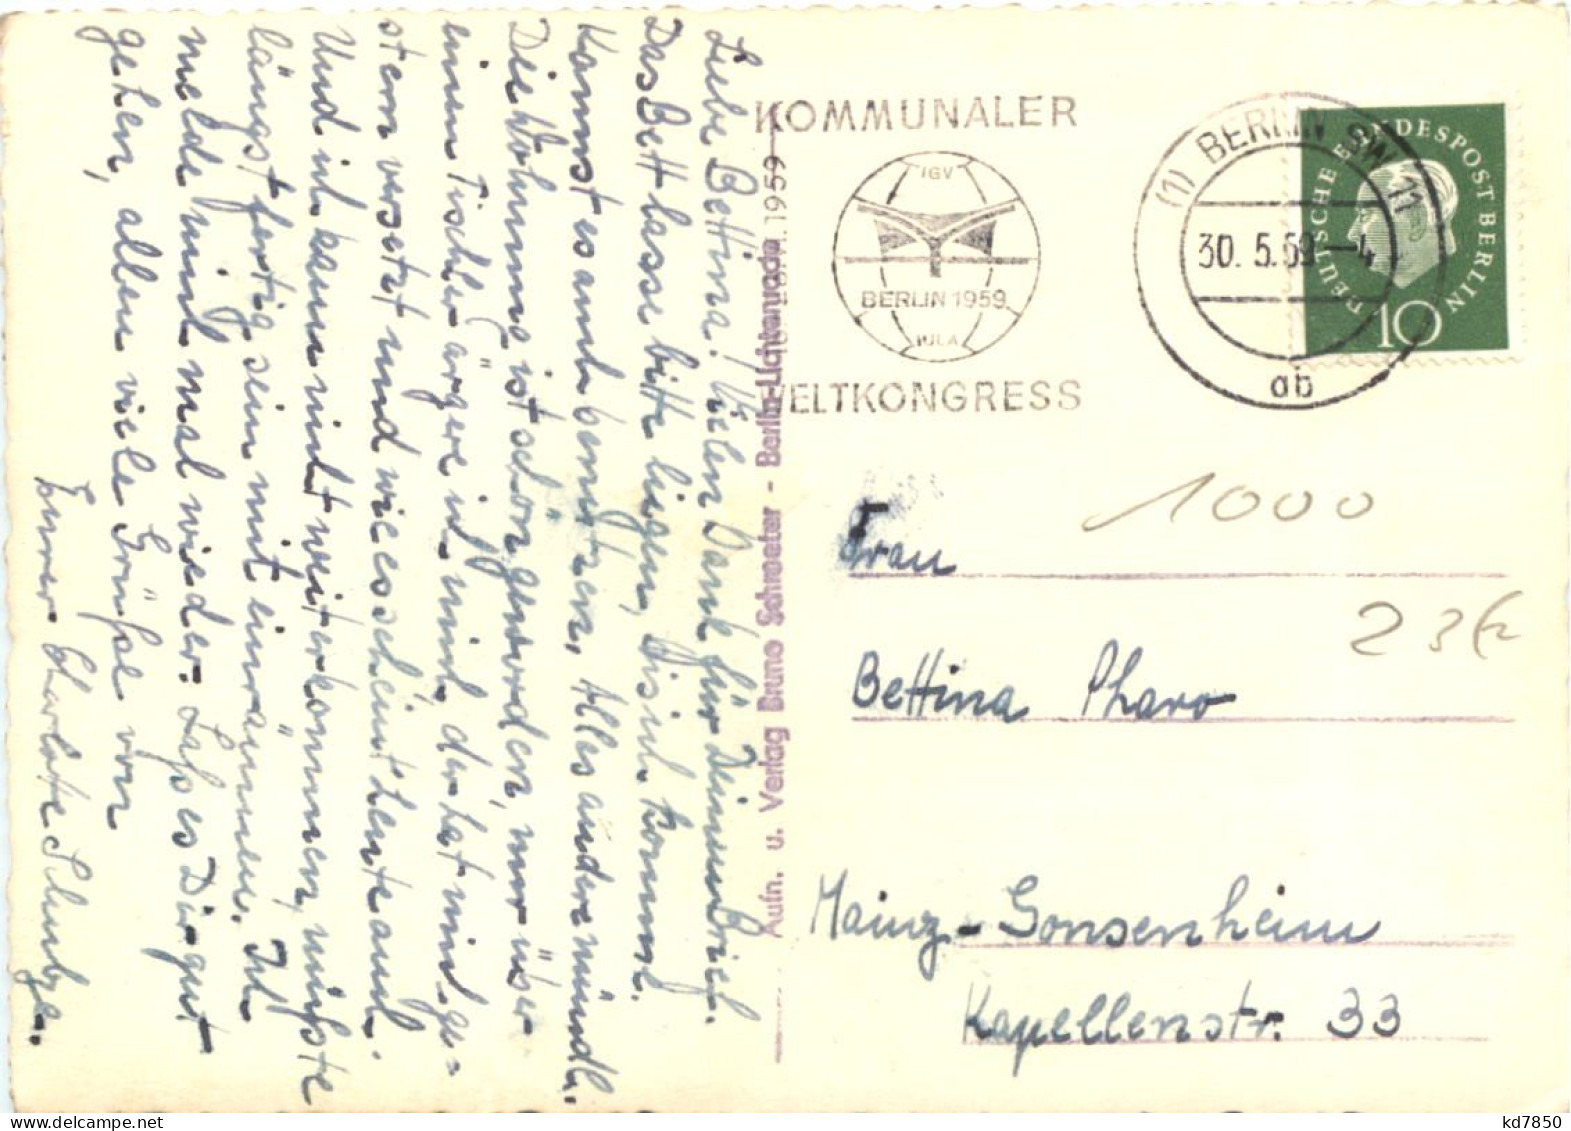 Liebe Bettina! Vielen Dank für Deinen Brief.
Das Bett lasse bitte liegen, bis ich komme.
Kannst es auch benutzen. Alles andere mündl.
Die Wohnung ist schön geworden, nur über
einen Tischler ärgere ich mich, der hat mich ge-
stern versetzt und wie es scheint heute auch.
Und ich kann nicht weiterkommen, müßte
längst fertig sein mit einräumen. Ich
melde mich mal wieder. Laß es Dir gut
gehen, allen viele Grüße von
Eurer Charlotte Schulze.
Aufn. u. Verlag Bruno Schroeter - Berlin-Lichtenrade
1959
KOMMUNALER
IGV
BERLIN 1959
IULA
WELTKONGRESS
(1) BERLIN SW 11
30. 5.59.-4
ab
DEUTSCHE BUNDESPOST BERLIN
10
1000
Frau
23
Bettina Pharo
Mainz-Gonsenheim
Kapellenstr. 33
kd7850